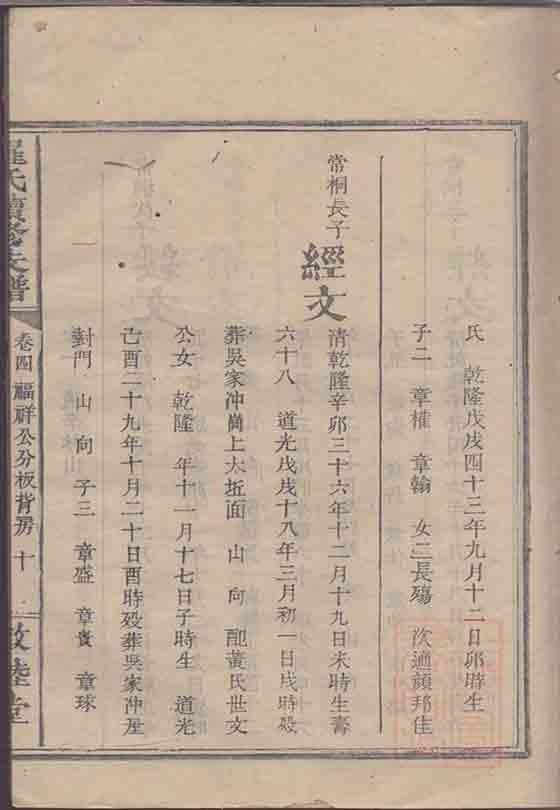 氏 乾隆戊戌四十三年九月十二日卯時生
子二 章權 章翰 女二長殤 次適顏邦佳
常桐長子
經文
清乾隆辛卯三十六年十二月十九日未時生壽
六十八 道光戊戌十八年三月初一日戌時歿
葬吳家冲崗上大坵面 山 向 配黃氏世文
公女 乾隆 年十一月十七日子時生 道光
己酉二十九年十月二十日酉時歿葬吳家冲屋
對門 山 向 子三 章盛 章貴 章球
羅氏續修支譜
卷四 福祥公分板背房 十
敦陸堂